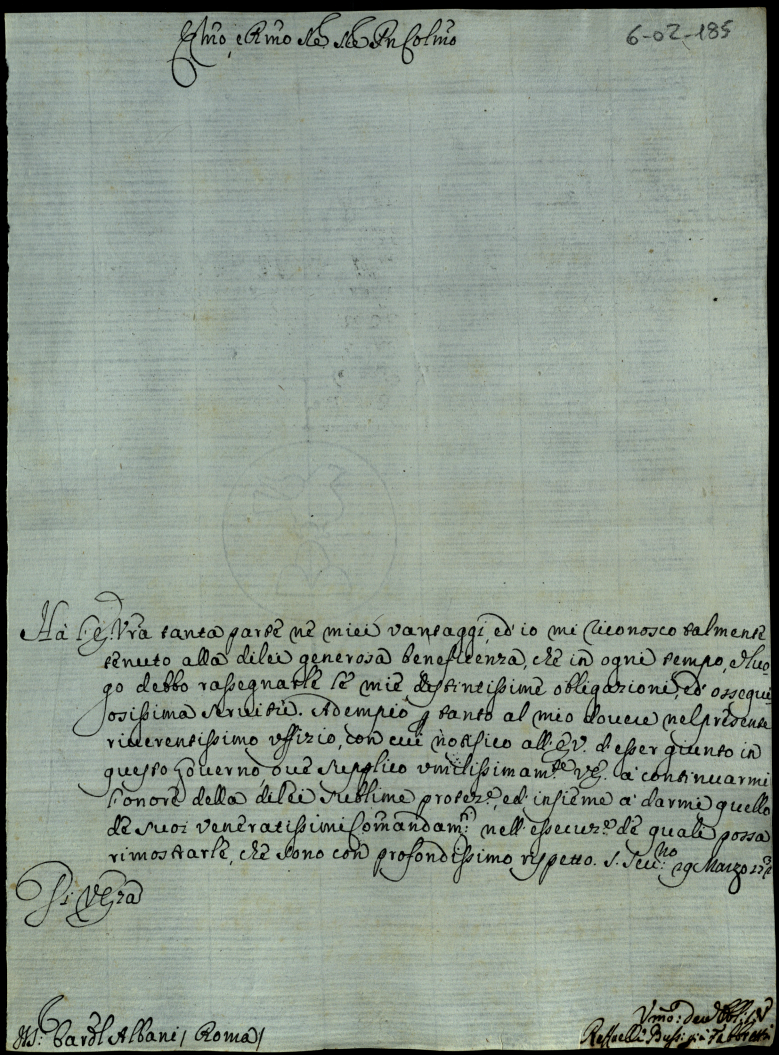 Em̃o, e Rm̃o Sig.re Sig.re Prõn Colm̃o
6-02-185
Hà l'E. Vr̃a tanta parte nè miei vantaggi, ed' io mi riconosco talmente
tenuto alla di lei generosa beneficenza, che in ogni tempo, e luo-
go debbo rassegnarle le mie distintissime obligazioni, ed' ossequi-
osissima servitù. Adempio p tanto al mio dovere nel presente
riverentissimo uffizio, con cui notifico all' E.V. d'esser giunto in
questo Governo ove supplico umilissimam.te V.E. à continuarmi
l'onore della di lei sublime protez.e, ed' insieme à darmi quello
de suoi veneratissimi Com̃andam.ti nell' essecuz.e de quali possa
rimostrarle, che sono con profondissimo rispetto. S. Sev.no 29 Marzo
Di V. Em̃za
Sig.r Card.l Albani / Roma /
Vm̃o: Dev. Obbl.
Raffaelli Bussi già Fabbretti